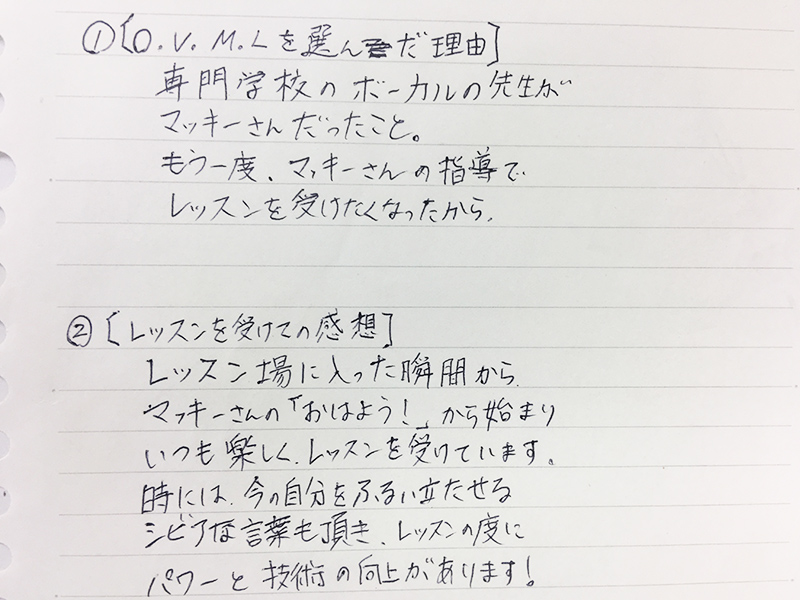 ①[O.V.M.Lを選んだ理由]
専門学校のボーカルの先生が
マッキーさんだったこと。
もう一度、マッキーさんの指導で
レッスンを受けたくなったから。
②[レッスンを受けての感想]
レッスン場に入った瞬間から
マッキーさんの「おはよう!」から始まり
いつも楽しく、レッスンを受けています。
時には、今の自分をふるい立たせる
シビアな言葉も頂き、レッスンの度に
パワーと技術の向上があります!